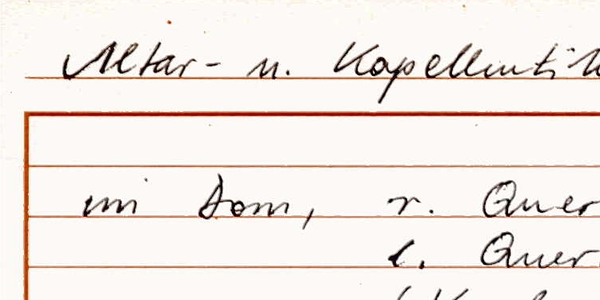 Altar- u. Kapellentit
im Dom, r. Quer
l. Quer